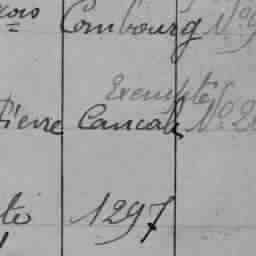 Combourg N°
Exempté
Pierre Cancale N° 2
te 1297